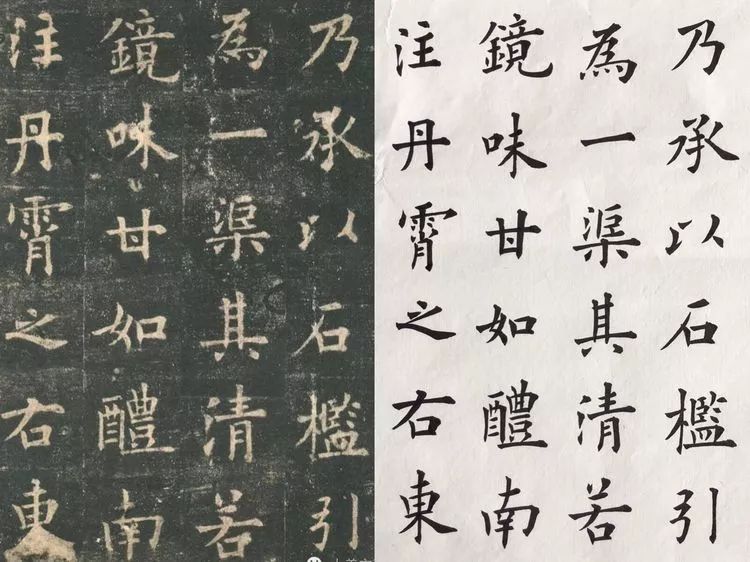 乃承以石檻引
為一渠其清若
鏡味甘如醴南
注丹霄之右東
乃承以石檻引
為一渠其清若
鏡味甘如醴南
注丹霄之右東